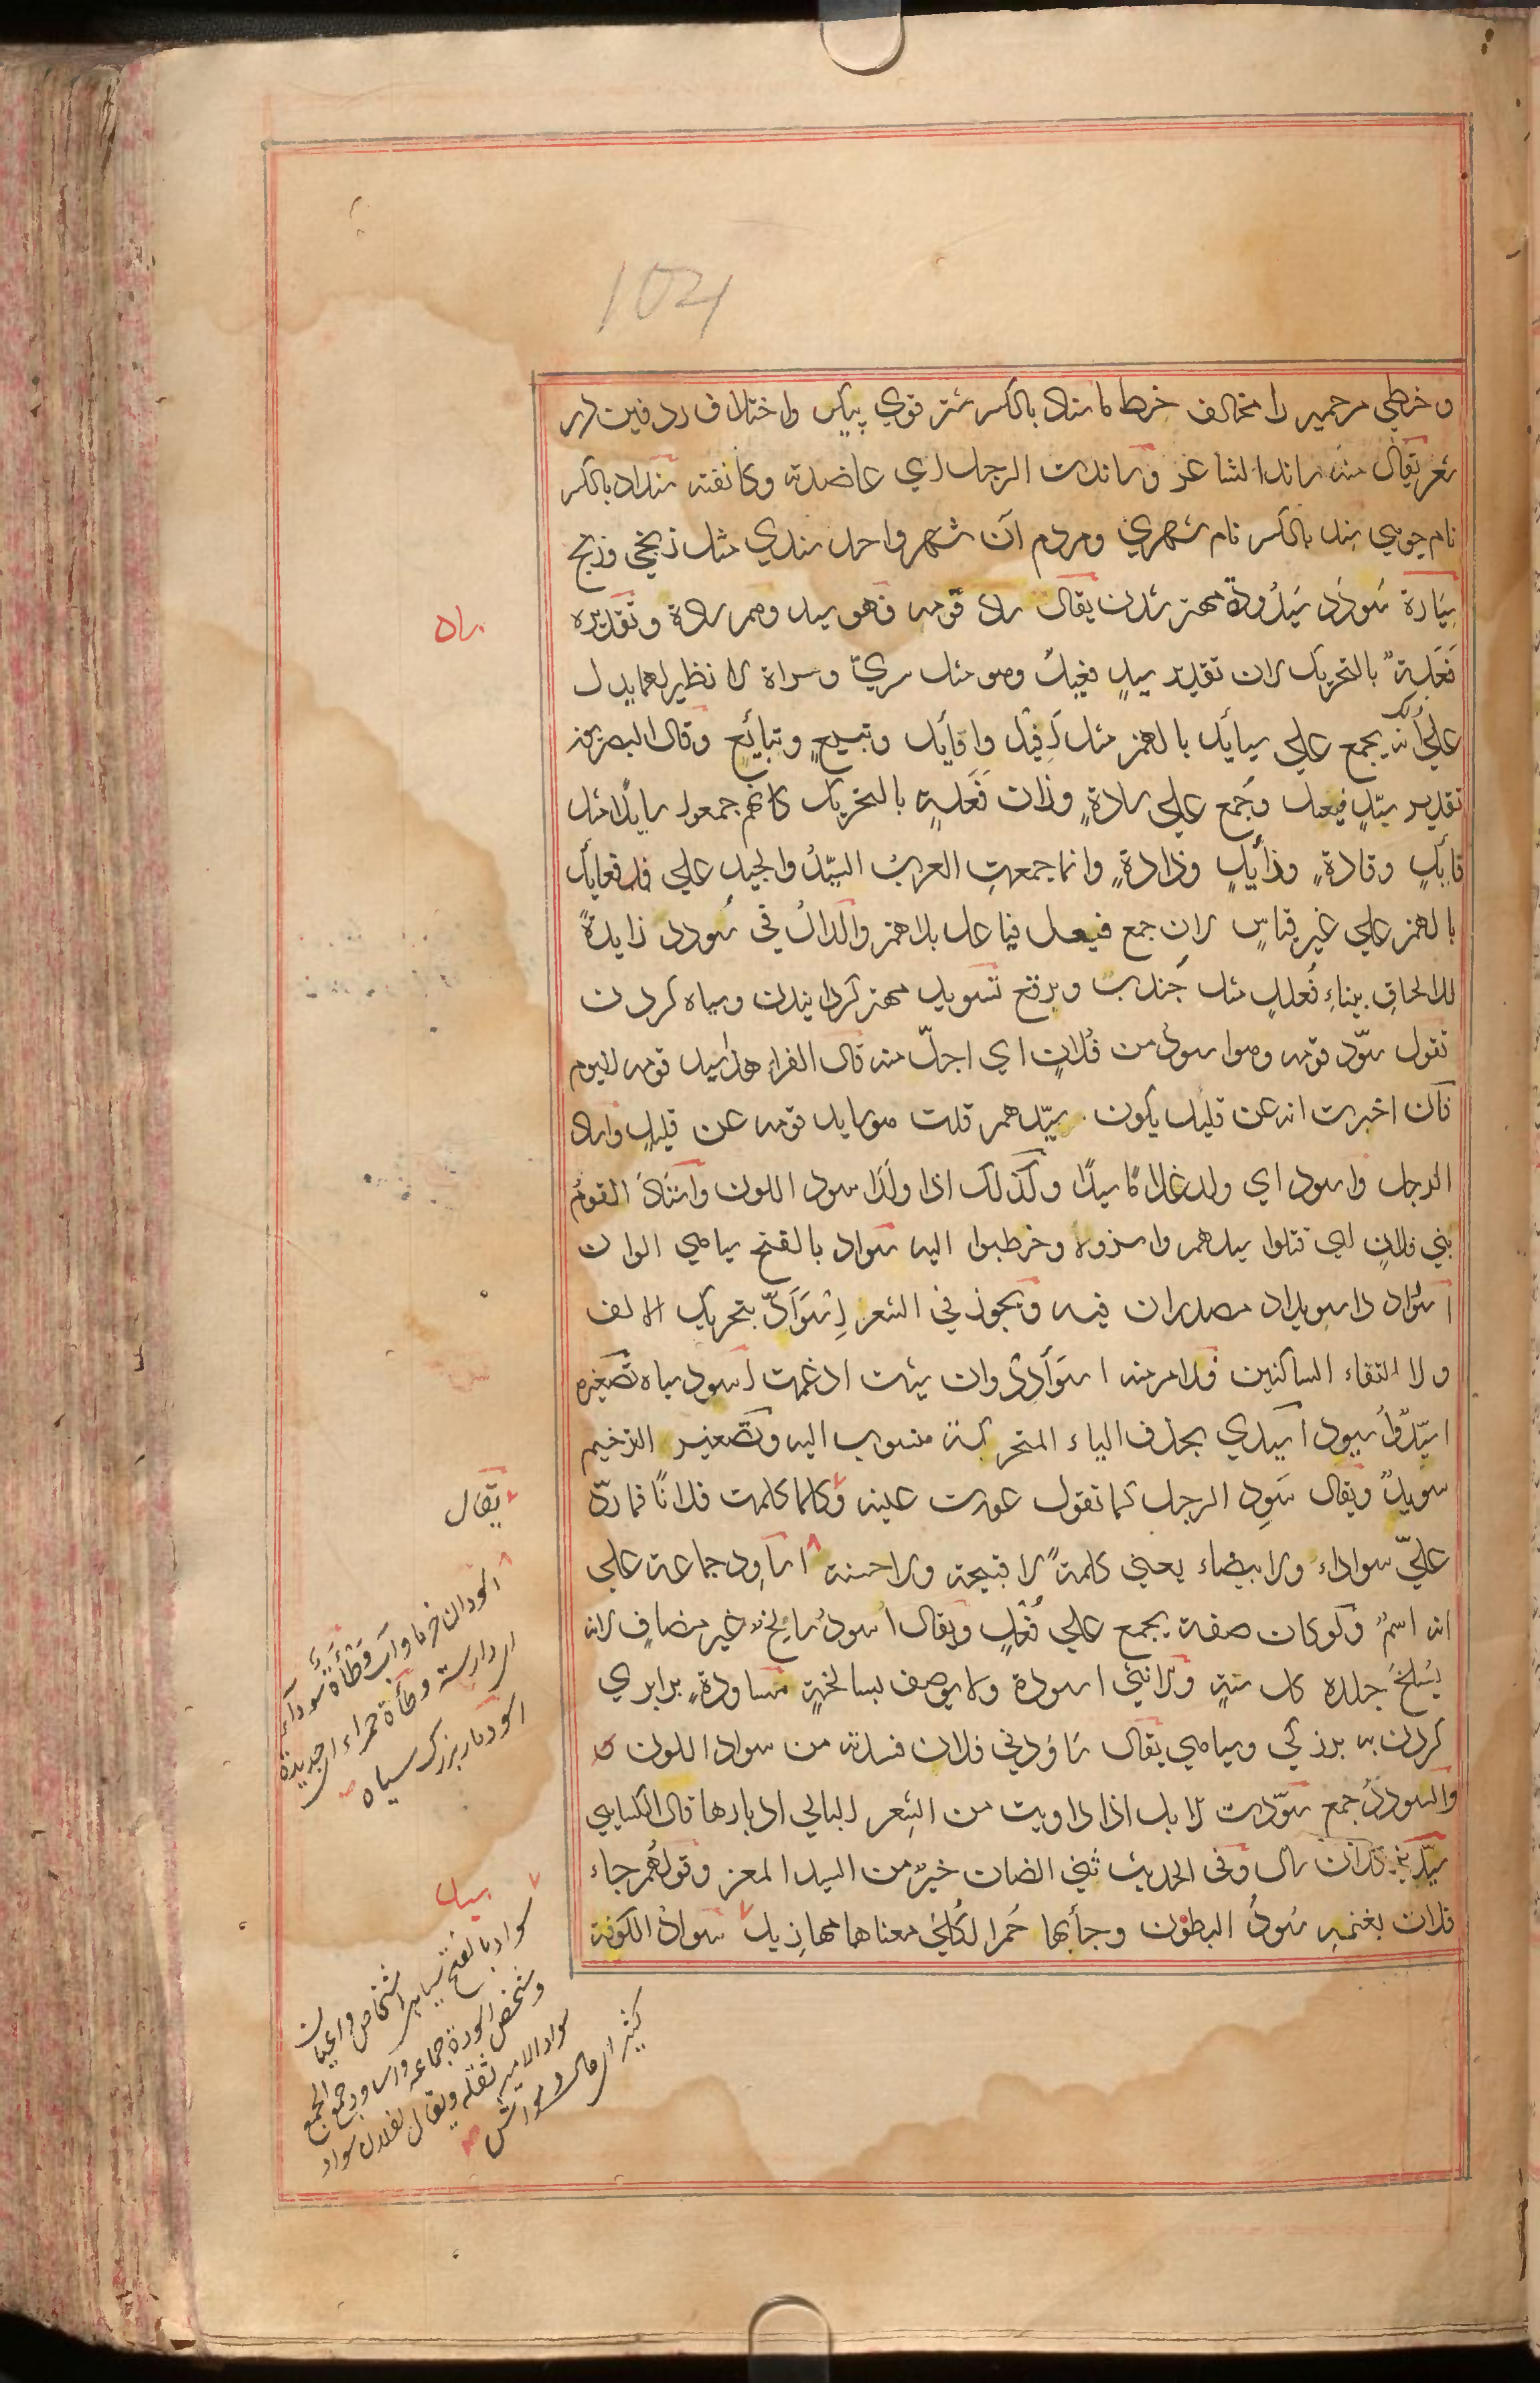 104
و خطی مرحمیر را مخالف خط ما سناد بالکسر شتر قوی پیکر و اختلاف ردفین در
شعر یقال منه ساند الشاعر و ساندت الرجل ای عاضدته و کانفته سنداد بالکسر
نام جویی سند بالکسر نام شهری و مردم آن شهر واحد سندی مثل زنجی و زنج
سِیَادة سُودَد سَیدُودة مهتر شدن یقال ساد قومه فهو سید وهم سادة و تقدیره
فَعَلة بالتحریک لان تقدیر سیدٍ فعیلٌ وهو مثل سریّ و سراة لا نظیر لهما یدل
علی ذلک انّه یجمع علی سیائد بالهمز مثل افیل و افائل و تبیعٍ و تبائعٍ و قال البصریون
تقدیر سیّدٍ فیعل و جُمع علی سادةٍ وزان فَعَلةٍ بالتحریک کانهم جمعوا سایدًا مثل
قائدٍ و قادةٍ و ذائدٍ و ذادةٍ و انما جمعتِ العربُ السیّدُ والجید علی فعائل
بالهمز علی غیر قیاسٍ لان جمع فیعل فیاعل بلا همز والدالُ فی سُودد زایدةً
للالحاقِ ببناءِ فُعلَلٍ مثل جُندب و برقع تسوید مهتر گردانیدن و سیاه کردن
تقول سوّد قومه وهو اسودُ من فُلانٍ ای اجلّ منه قال الفراء هذا سید قومه الیوم
فان اخبرت انه عن قلیل یکون سیّدهم قلت هو ساید قومه عن قلیلٍ و اساد
الرجل و اسود ای ولد غلامًا سیدًا و کذلک اذا ولدا سود اللون و استاد القومُ
بنی فلانٍ ای قتلوا سیدهم و اسروه و خطبوا الیه سواد بالفتح سیاهی الوان
اسواد و اسویداد مصدران فیه و یجوز فی الشعر اسْوَأدّ بتحریک الالف
و لا التقاء الساکنین فالامر منه اسوَأدِد وان شئت ادغمت اسود سیاه تصغیره
اسیّد و اُسیود اسیدی بحذف الیاء المتحرکة منسوب الیه و تصغیر الترخیم
سویدٌ و یقال سَوِد الرجل کما تقول عورت عینه و کلما کلمت فلانًا فما ردّ
علیّ سوداء و لا بیضاء یعنی کلمةً لا قبیحة و لا حسنة اساوِد جماعة علی
انه اسمٌ و لو کان صفة یجمع علی فُعْلٍ و یقال اسودُ سالخٌ غیر مضافٍ لانه
یَسْلَخُ جلده کل سنةٍ و الانثی اسودة و لا یوصف بسالخةٍ مساودة برابری
کردن به بزرگی و سیاهی یقال ساودنی فلان فسدته من سواد اللون
و السودد جمع سوّدت الابل اذا داویت من الشعر البالی ادبارها قال الکسایی
سیّد فلان و فی الحدیث ثنی الضان خیر من السید المعز و قولهم جاء
فلان بغنمه سُودُ البطون و جاء بها حُمر الکُلی معناهما مهازیل سواد الکوفة
ساد
یقال
اسودان خرما و آب وَطْأةٌ سَوداء
ای دارسة و وطأة حمراء ای جدیدة
اسود مار بزرگ سیاه
سید
سواد بالفتح سیاهی اشخاص و اعیان
و شخص اسودة جماعه و اساود جمع الجمع
سواد الامیر ثقله و یقال لفلان سواد
کثیر ای مال و مواش